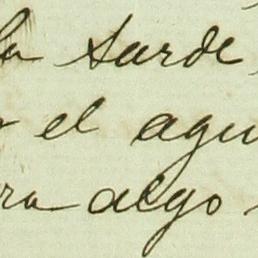 la tarde
el agu
ra algo